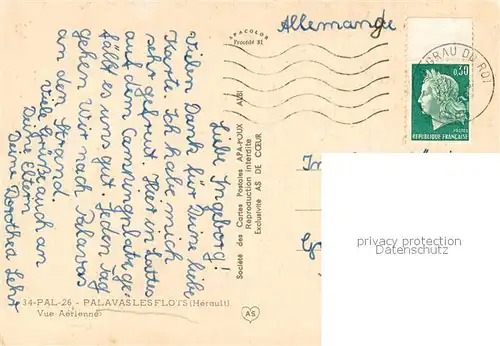 Allemande
APACOLOR
Procédé 81
GRAU DU ROI
0,30
REPUBLIQUE FRANÇAISE
POSTES
Liebe Ingeborg!
Vielen Dank für Deine liebe
Karte. Ich habe mich
sehr gefreut. Hier in Lattes
auf dem Campingplatz ge-
fällt es uns gut. Jeden Tag
gehen wir nach Palavas
an den Strand.
Viele Grüße auch an
Deine Eltern
Deine Dorothea Lehr
Société des Cartes Postales APA-POUX - ALBI
Reproduction interdite
Exclusivité AS DE CŒUR
34-PAL-26 - PALAVAS LES FLOTS (Hérault)
Vue Aérienne
AS
property protection
Eigentumsschutz